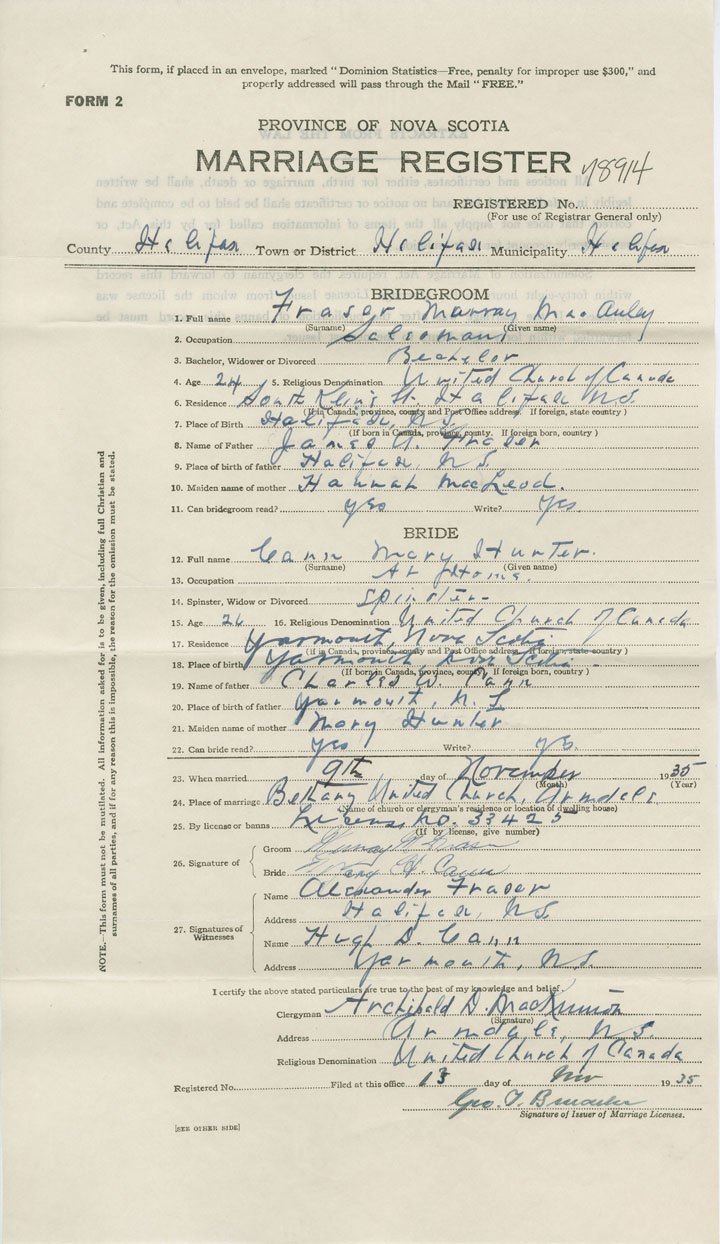 This form, if placed in an envelope, marked "Dominion Statistics—Free, penalty for improper use $300," and
properly addressed will pass through the Mail "FREE."
FORM 2
PROVINCE OF NOVA SCOTIA
MARRIAGE REGISTER 78914
REGISTERED No.
(For use of Registrar General only)
County Halifax Town or District Halifax Municipality Halifax
BRIDEGROOM
1. Full name Fraser Murray MacAuley
(Surname) (Given name)
2. Occupation Salesman
3. Bachelor, Widower or Divorced Bachelor
4. Age 24 5. Religious Denomination United Church of Canada
6. Residence South Kline St. Halifax N.S.
(If in Canada, province, county and Post Office address. If foreign, state country)
7. Place of Birth Halifax, N.S.
(If born in Canada, province, county. If foreign born, country)
8. Name of Father James A. Fraser
9. Place of birth of father Halifax, N.S.
10. Maiden name of mother Hannah MacLeod.
11. Can bridegroom read? yes Write? Yes.
BRIDE
12. Full name Cann Mary Hunter.
(Surname) (Given name)
13. Occupation At Home.
14. Spinster, Widow or Divorced Spinster-
15. Age 26 16. Religious Denomination United Church of Canada
17. Residence Yarmouth, Nova Scotia
(if in Canada, province, county and Post Office address. If foreign, state country)
18. Place of birth Yarmouth, Nova Scotia.
(If born in Canada, province, county. If foreign born, country)
19. Name of father Charles W. Cann
20. Place of birth of father Yarmouth, N.S.
21. Maiden name of mother Mary Hunter
22. Can bride read? Yes Write? yes.
23. When married 9th day of November 1935
(Month) (Year)
24. Place of marriage Bethany United Church, Armdale
(Name of church or clergyman's residence or location of dwelling house)
25. By license or banns License, No. 33425
(If by license, give number)
26. Signature of
Groom Murray Fraser
Bride Mary H. Cann
27. Signatures of Witnesses
Name Alexander Fraser
Address Halifax, N.S.
Name Hugh D. Cann
Address Yarmouth, N.S.
I certify the above stated particulars are true to the best of my knowledge and belief.
Clergyman Archibald D. MacKinnon
(Signature)
Address Armdale, N.S.
Religious Denomination United Church of Canada
Registered No. Filed at this office 13 day of Nov 1935
Geo. T.
Signature of Issuer of Marriage Licenses.
[SEE OTHER SIDE]
NOTE.—This form must not be mutilated. All information asked for is to be given, including full Christian and
surnames of all parties, and if for any reason this is impossible, the reason for the omission must be stated.